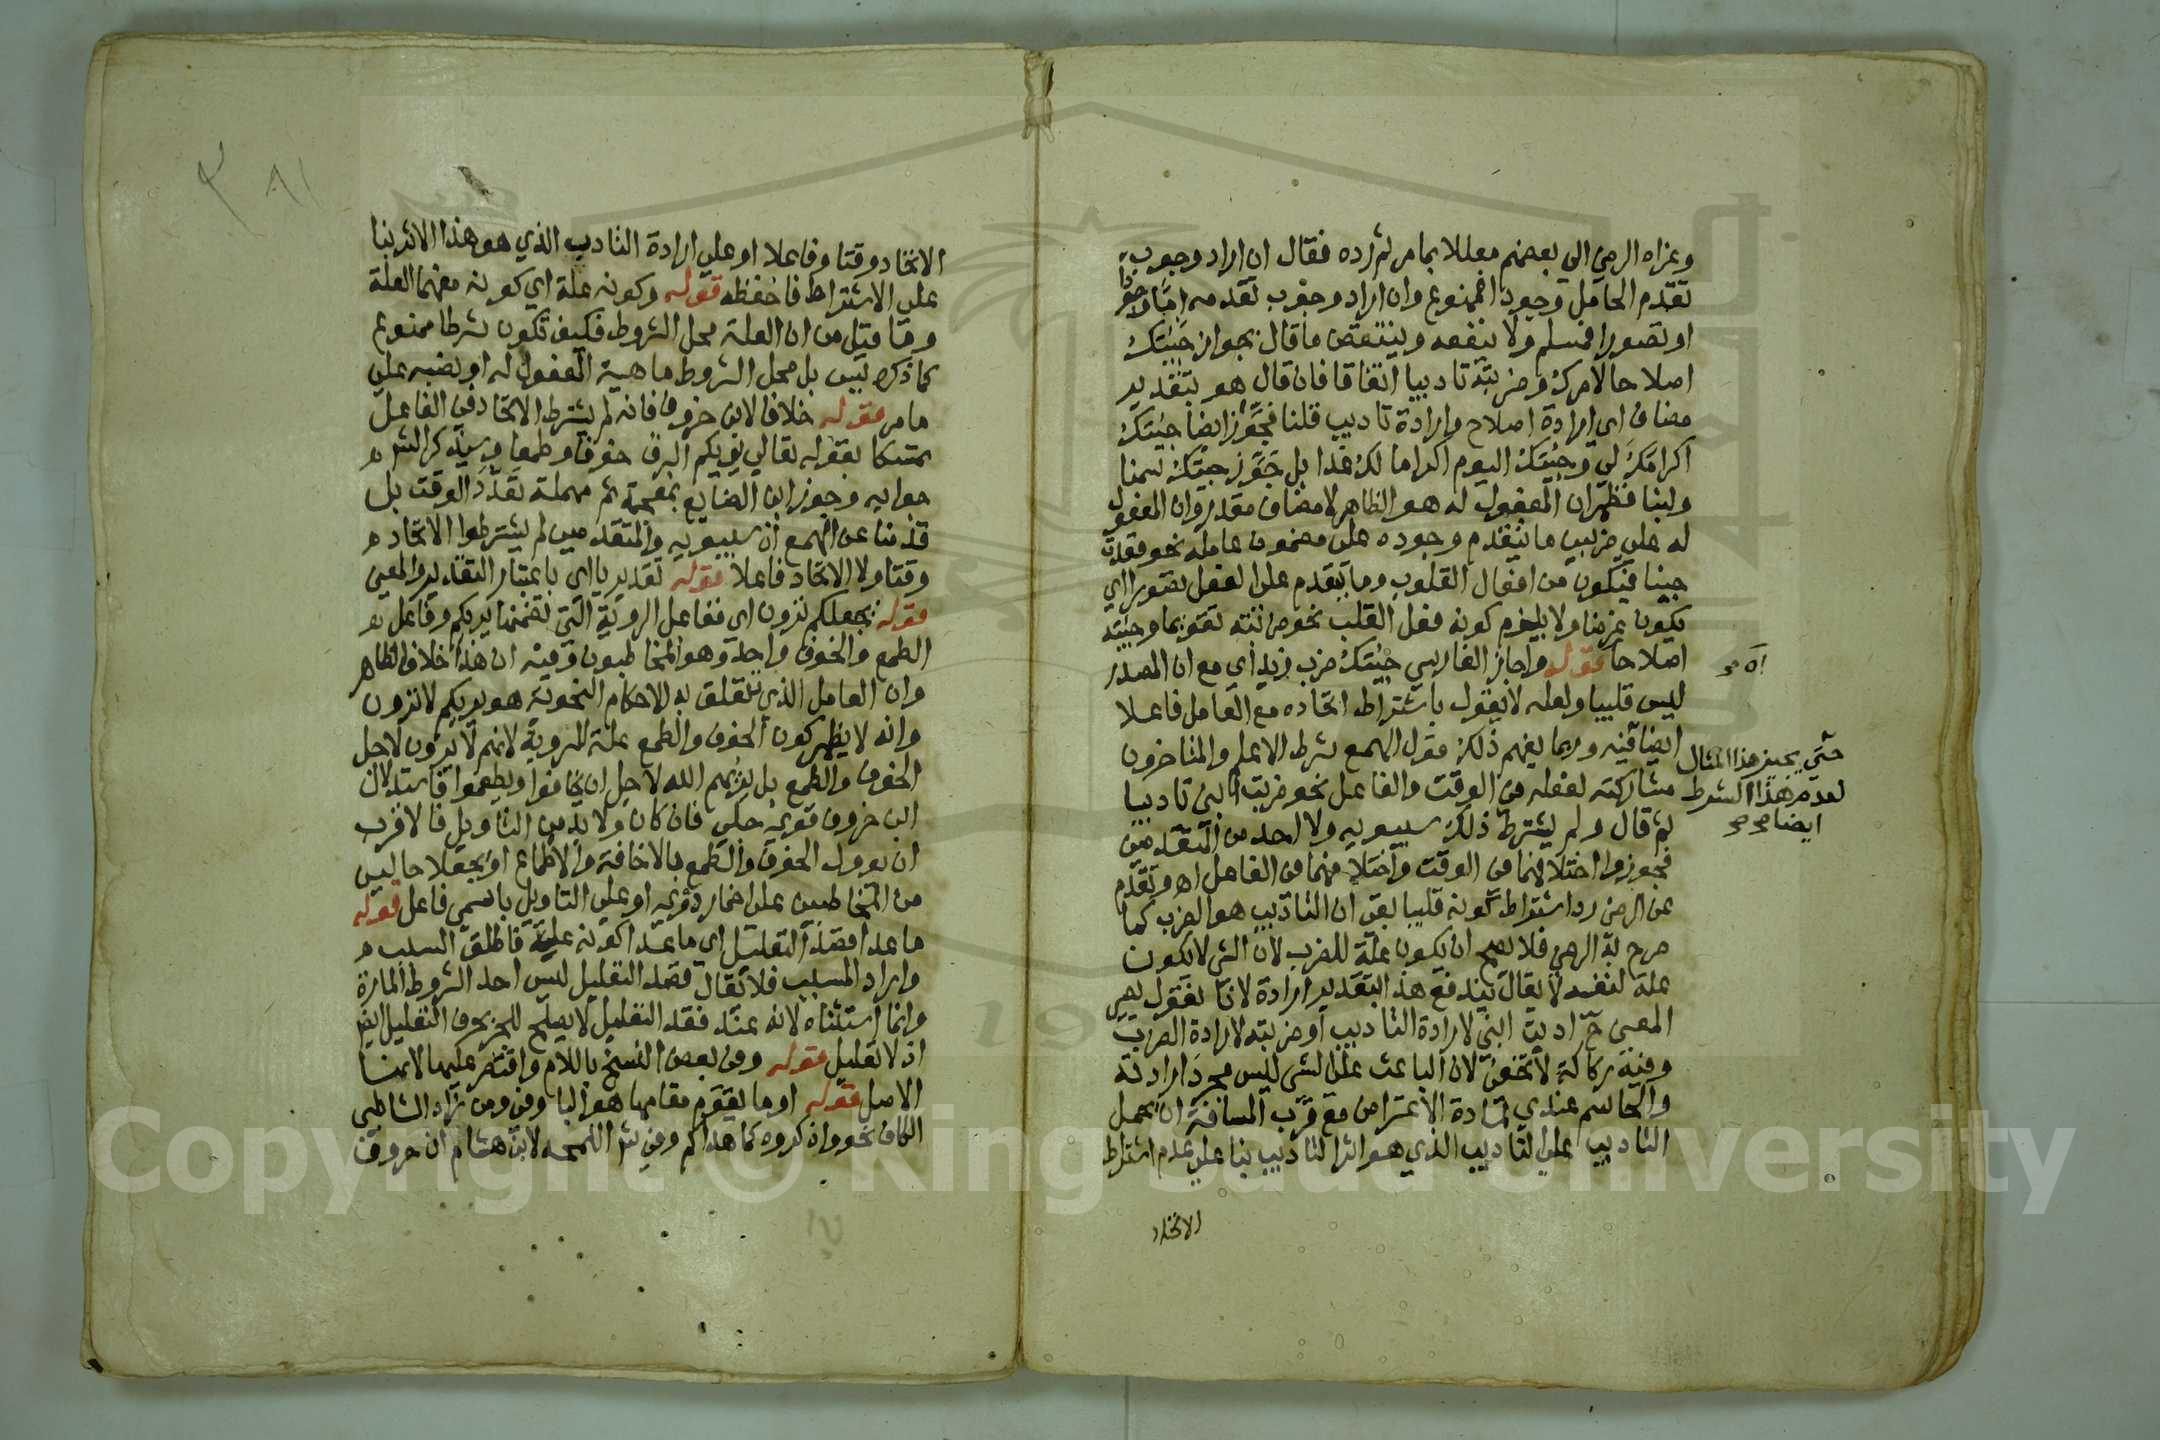 وعزاه الرضي الى بعضهم معللا بما مر ثم رده فقال ان اراد وجوب
تقدم الحامل وجودا فممنوع وان اراد وجوب تقدمه اما وجودا
او تصورا فمسلم ولا ينفعه وينتقض ما قال بجواز جيتك
اصلاحا لامرك وضربته تاديبا اتفاقا فان قال هو بتقدير
مضاف اي ارادة اصلاح وارادة تاديب قلنا فجوز ايضا جيتك
اكرامك لي وجيتك اليوم اكراما لك غدا بل جوز جيتك سمنا
ولبنا فظهر ان المفعول له هو الظاهر لا مضاف مقدر وان المفعول
له على ضربين ما يتقدم وجوده على مضمون عامله نحو قعدت
جبنا فيكون من افعال القلوب وما يتقدم على الفعل تصورا اي
يكون غرضا ولا يلزم كونه فعل القلب نحو ضربته تقويما وجيته
اصلاحا قوله واجاز الفارسي جيتك ضرب زيد اي مع ان المصدر
ليس قلبيا ولعله لا يقول باشتراط اتحاده مع العامل فاعلا
ايضا فيه وربما يفهم ذلك قول الهمع شرط الاعلم والمتاخرون
مشاركته لفعله في الوقت والفاعل نحو ضربت ابني تاديبا
ثم قال ولم يشترط ذلك سيبويه ولا احد من المتقدمين
فجوزوا اختلافهما في الوقت واختلافهما في الفاعل اه وتقدم
عن الرضي رد اشتراط كونه قلبيا بقي ان التاديب هو الضرب كما
صرح به الرضي فلا يصح ان يكون علة للضرب لان الشي لا يكون
علة لنفسه لا يقال يندفع هذا بتقدير ارادة لانا نقول يصير
المعنى ح ادبت ابني لارادة التاديب او ضربته لارادة الضرب
وفيه ركاكة لا تخفى لان الباعث على الشي ليس مجرد ارادته
والحاسم عندي لمادة الاعتراض مع قرب المسافة ان يحمل
التاديب على التاديب الذي هو اثر التاديب بنا على عدم اشتراط
الاتحاد
اه صح
حتى يجيز هذا المثال
لعدم هذا الشرط
ايضا صح صح
الاتحاد وقتا وفاعلا او على ارادة التاديب الذي هو هذا الاثر بنا
على الاشتراط فاحفظه قوله وكونه علة اي كونه مفهما العلة
وما قيل من ان العلة محل الشروط فكيف تكون شرطا ممنوع
كما ذكره يس بل محل الشروط ماهية المفعول له او نصبه على
ما مر قوله خلافا لابن خروف فانه لم يشترط الاتحاد في الفاعل
متمسكا بقوله تعالى يريكم البرق خوفا وطمعا وسيذكر الش
جوابه وجوز ابن الضايع بمعجمة ثم مهملة تعدد الوقت بل
قدمنا عن الهمع ان سيبويه والمتقدمين لم يشترطوا الاتحاد
وقتا ولا الاتحاد فاعلا قوله تقديرا اي باعتبار التقدير والمعنى
قوله يجعلكم ترون اي ففاعل الروية التي تضمنها يريكم وفاعل
الطمع والخوف واحد وهو المخاطبون وفيه ان هذا خلاف الظاهر
وان العامل الذي تتعلق به الاحكام النحوية هو يريكم لا ترون
وانه لا يظهر كون الخوف والطمع علة للروية لانهم لا يرون لاجل
الخوف والطمع بل يريهم الله لاجل ان يخافوا ويطمعوا فاستدلال
ابن خروف قوي جلي فان كان ولا بد من التاويل فالاقرب
ان يوول الخوف والطمع بالاخافة والاطماع او يجعلا حالين
من المخاطبين على اضمار ذوي او على التاويل باسمي فاعل قوله
ما عدا قصد التعليل اي ما عدا كونه علة فاطلق السبب
واراد المسبب فلا يقال قصد التعليل ليس احد الشروط المارة
وانما استثناه لانه عند فقد التعليل لا يصلح للجر بحرف التعليل ايضا
اذ لا تعليل قوله وفي بعض النسخ باللام واقتصر عليها لانها
الاصل قوله او ما يقوم مقامها هو البا وفي ومن زاد الشاطبي
الكاف نحو واذكروه كما هداكم وفي شر اللمحه لابن هشام ان حروف
Copyright © King Saud University